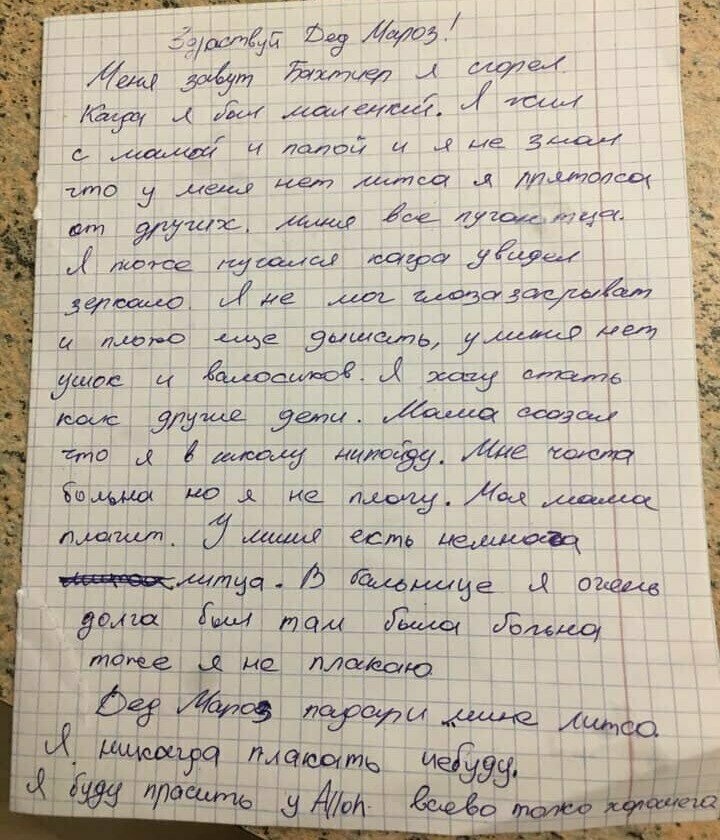 Здраствуй Дед Мароз!
Меня завут Бахтиер я сгорел.
Кагда я был маленкий. Я жил
с мамой и папой и я не знал
что у меня нет литса я прятолса
от других. миня все пугаютца.
Я тоже пугался кагда увидел
зеркало. Я не мог глоза закрыват
и плохо еще дышать, у миня нет
ушок и валосиков. Я хачу стать
как другие дети. Мама скозал
что я в школу нипойду. Мне часта
больна но я не плачу. Моя мама
плачит. У миня есть немнога
литца. В бальнице я очень
долга был там была больна
тоже я не плакаю
Дед Мароз падари мине литсо.
Я никагда плакать небуду.
Я буду прасить у Alloh всево токо харошега